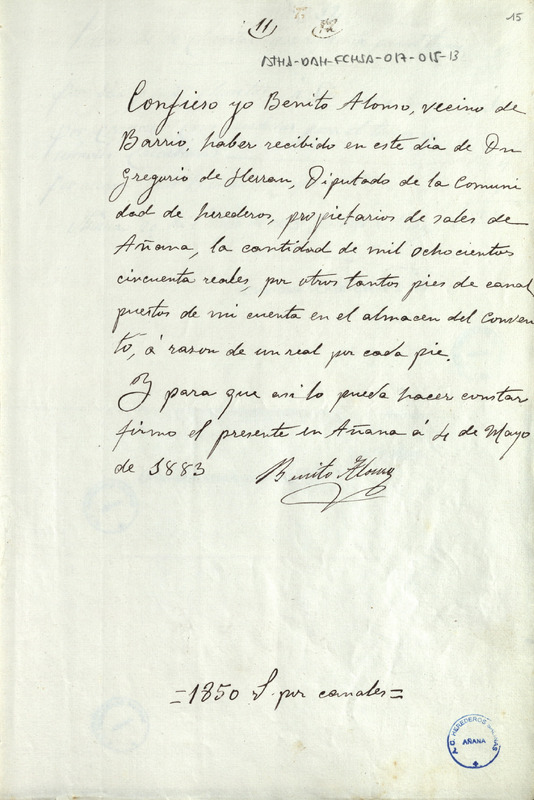 15
11
ATHA-DAH-FCHSA-017-015-13
Confieso yo Benito Alonso, vecino de
Barrio, haber recibido en este dia de Dn
Gregorio de Herran, Diputado de la Comuni
dad de herederos, propietarios de sales de
Añana, la cantidad de mil ochocientos
cincuenta reales, por otros tantos pies de canal
puestos de mi cuenta en el almacen del Conven-
to, á razon de un real por cada pie.
Y para que asi lo pueda hacer constar
firmo el presente en Añana á 4 de Mayo
de 1883 Benito Alonso
=1850 por canales=
HEREDEROS
AÑANA